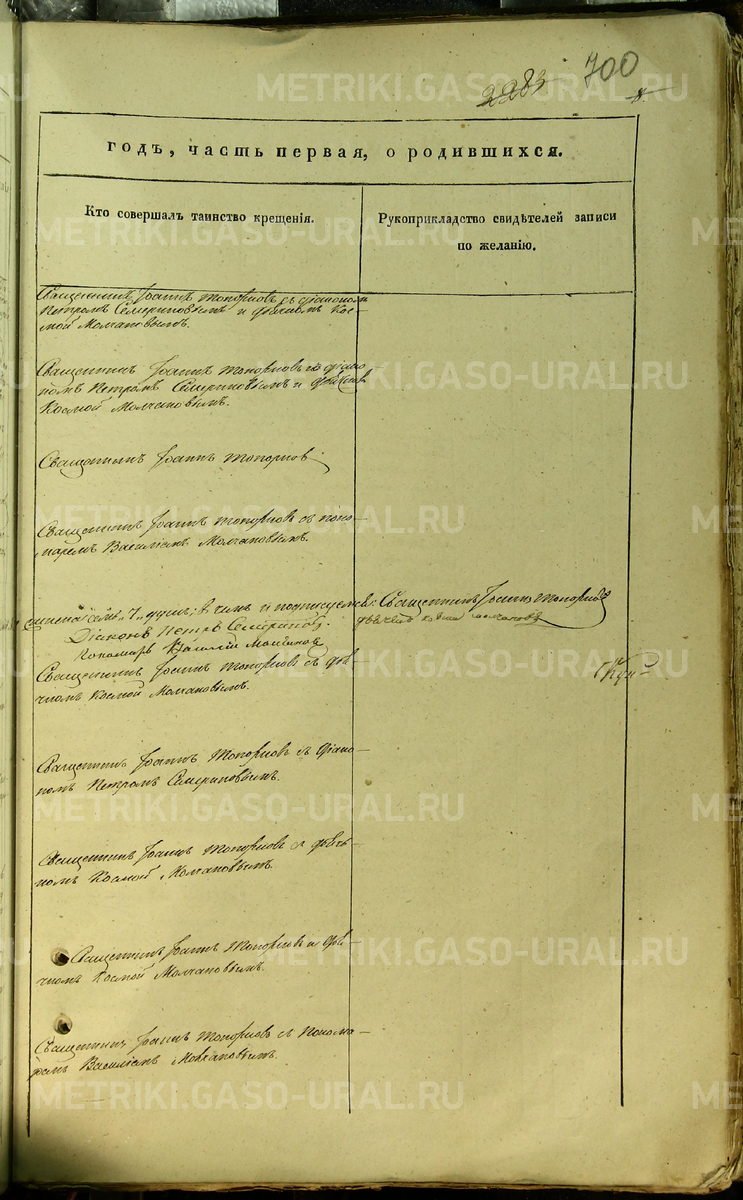 2283 700
годъ, часть первая, о родившихся.
Кто совершалъ таинство крещенія.
Рукоприкладство свидѣтелей записи
по желанію.
Священникъ Іоаннъ Топорковъ съ діакономъ
Петромъ Семериновымъ и дьячкомъ Кос-
мой Молчановымъ.
Священникъ Іоаннъ Топорковъ съ діако-
номъ Петромъ Семериновымъ и дьячкомъ
Космой Молчановымъ.
Священникъ Іоаннъ Топорковъ
Священникъ Іоаннъ Топорковъ съ поно-
маремъ Василіемъ Молчановымъ.
семь „7„ душъ; в чемъ и подписуемся: Священникъ Іоаннъ Топорковъ
Діаконъ Петръ Семериновъ. дьячекъ Молчановъ
Пономарь Василій Молчановъ
Священникъ Іоаннъ Топорковъ съ дья-
чкомъ Космой Молчановымъ.
Священникъ Іоаннъ Топорковъ съ діако-
номъ Петромъ Семериновымъ.
Священникъ Іоаннъ Топорковъ съ дьяч-
комъ Космой Молчановымъ.
Священникъ Іоаннъ Топорковъ съ дья-
чкомъ Космой Молчановымъ.
Священникъ Іоаннъ Топорковъ съ Понома-
ремъ Василіемъ Молчановымъ.
METRIKI.GASO-URAL.RU